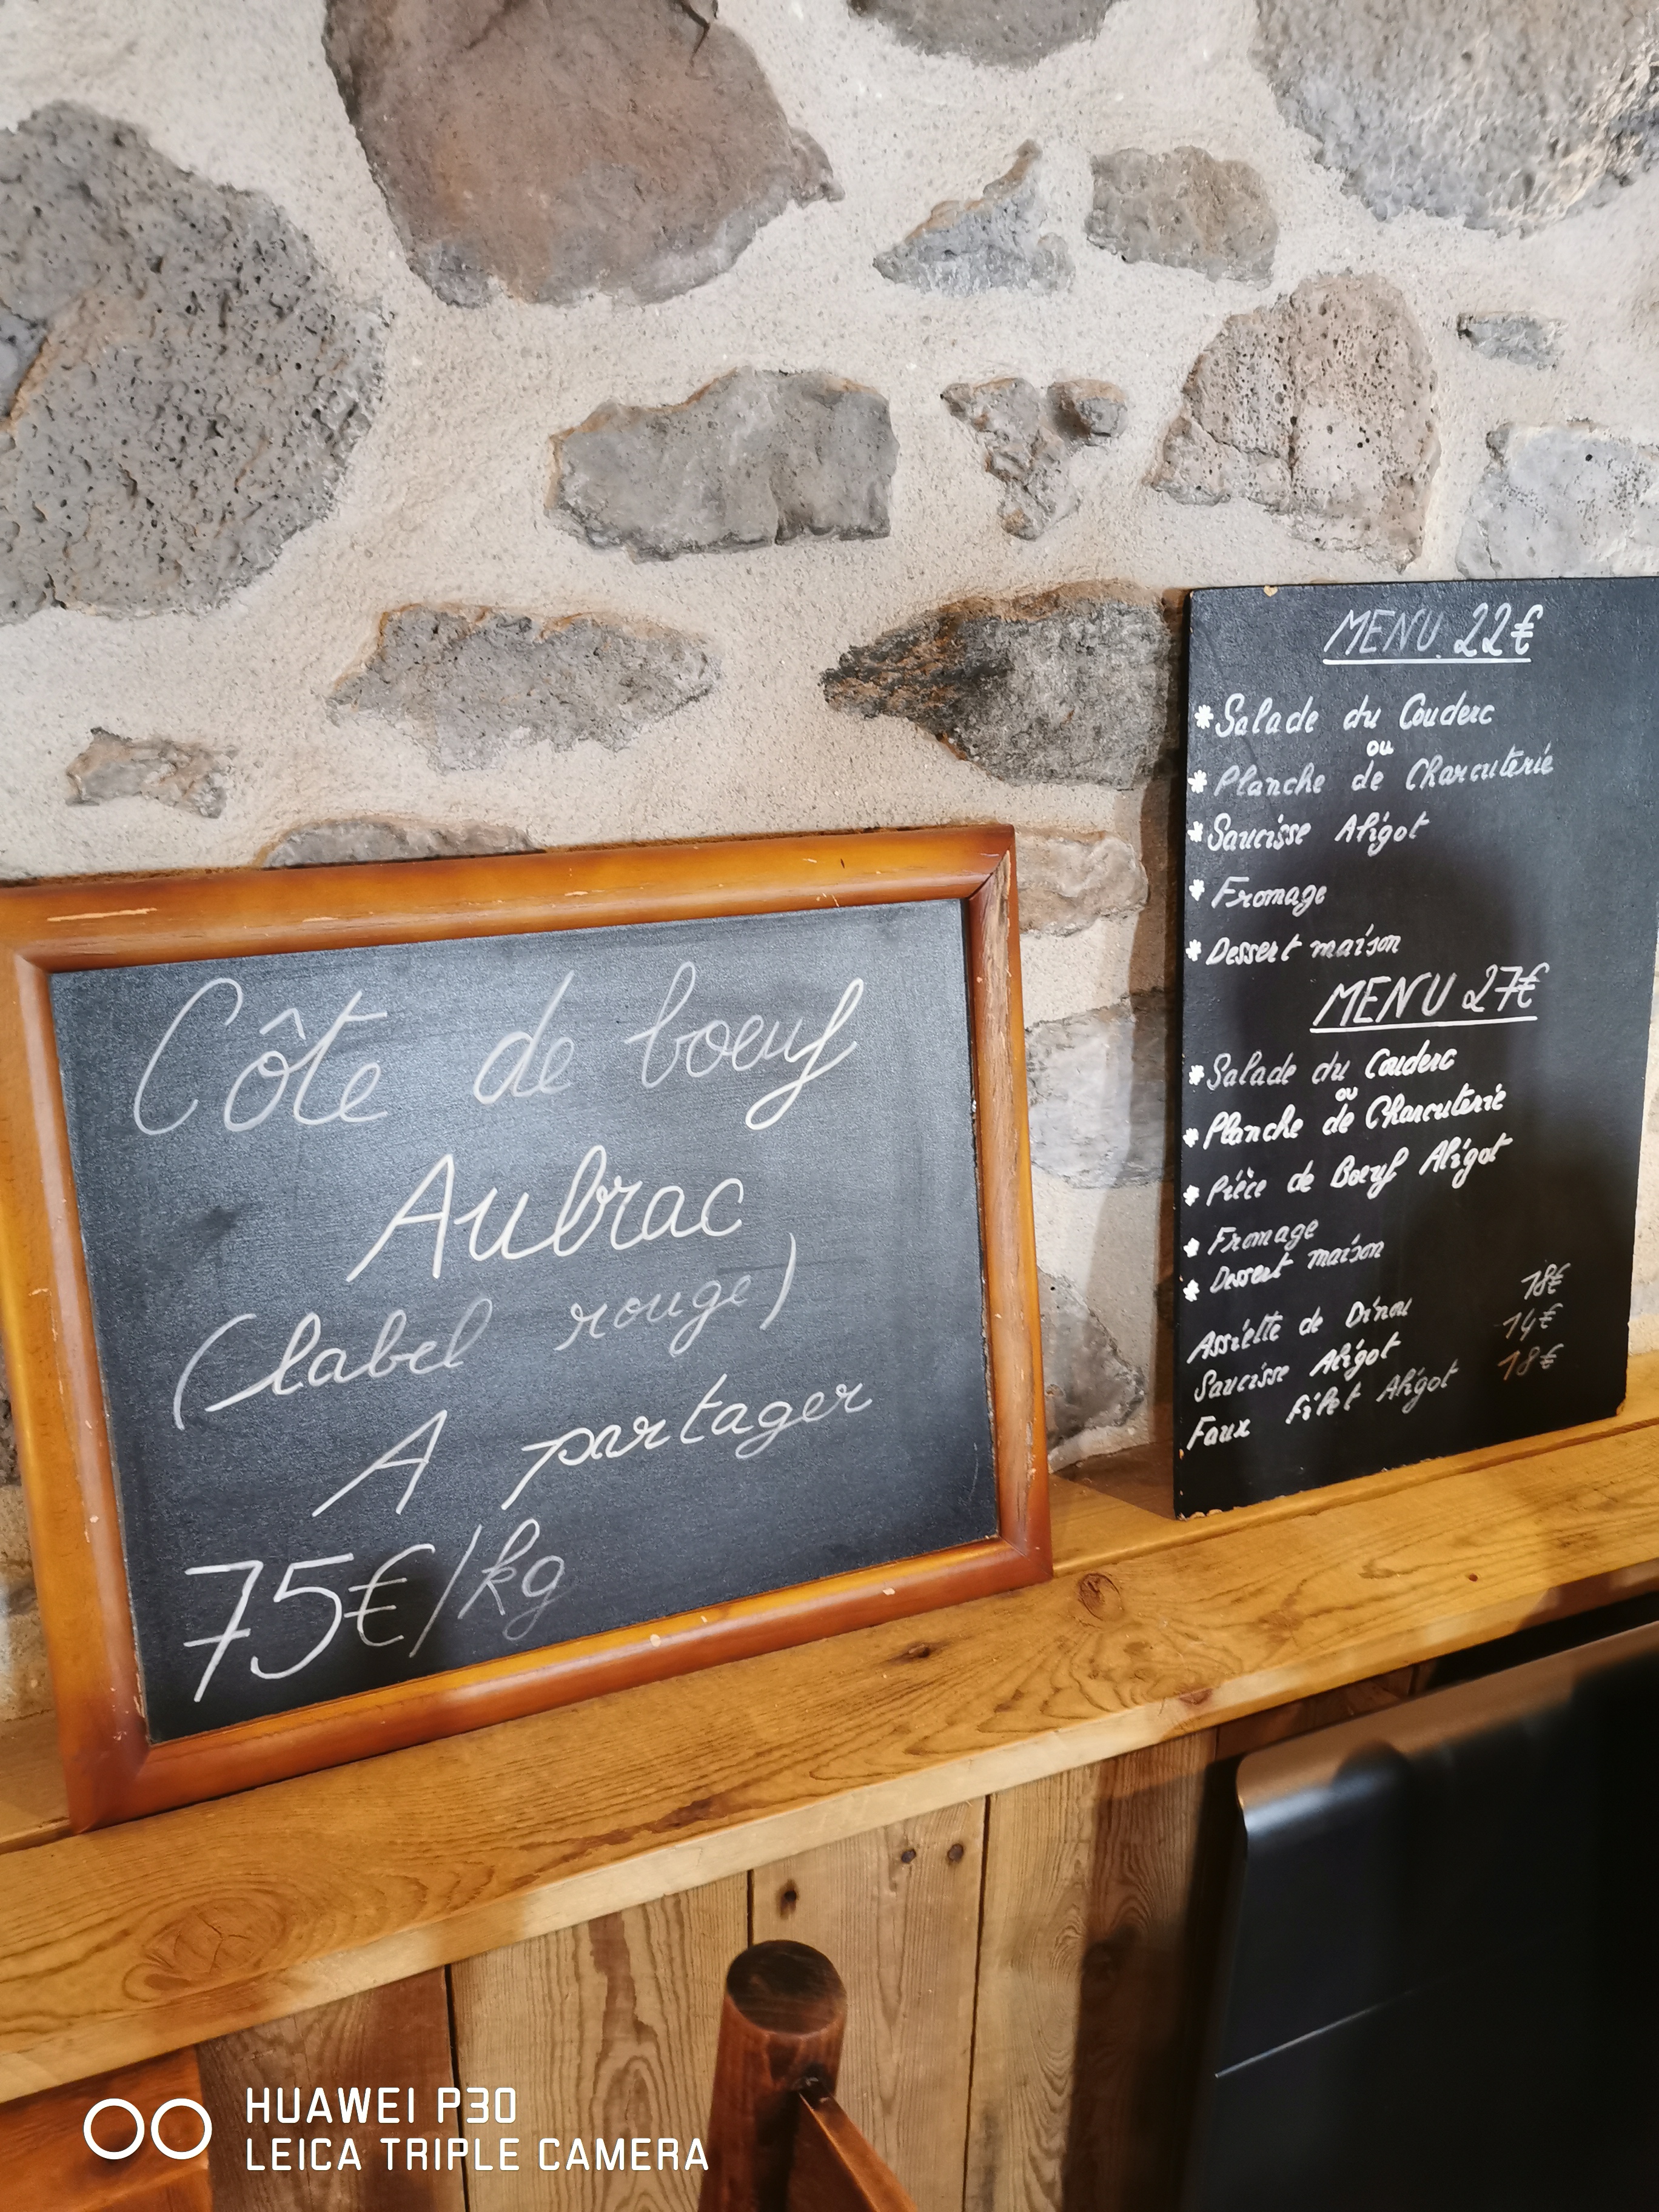 Côte de boeuf
Aubrac
(label rouge)
A partager
75€/kg
MENU 22€
* Salade du Couderc
ou
* Planche de Charcuterie
* Saucisse Aligot
* Fromage
* Dessert maison
MENU 27€
* Salade du Couderc
ou
* Planche de Charcuterie
* Pièce de Boeuf Aligot
* Fromage
* Dessert maison
Assiette de Dinou 18€
Saucisse Aligot 14€
Faux filet Aligot 18€
HUAWEI P30
LEICA TRIPLE CAMERA